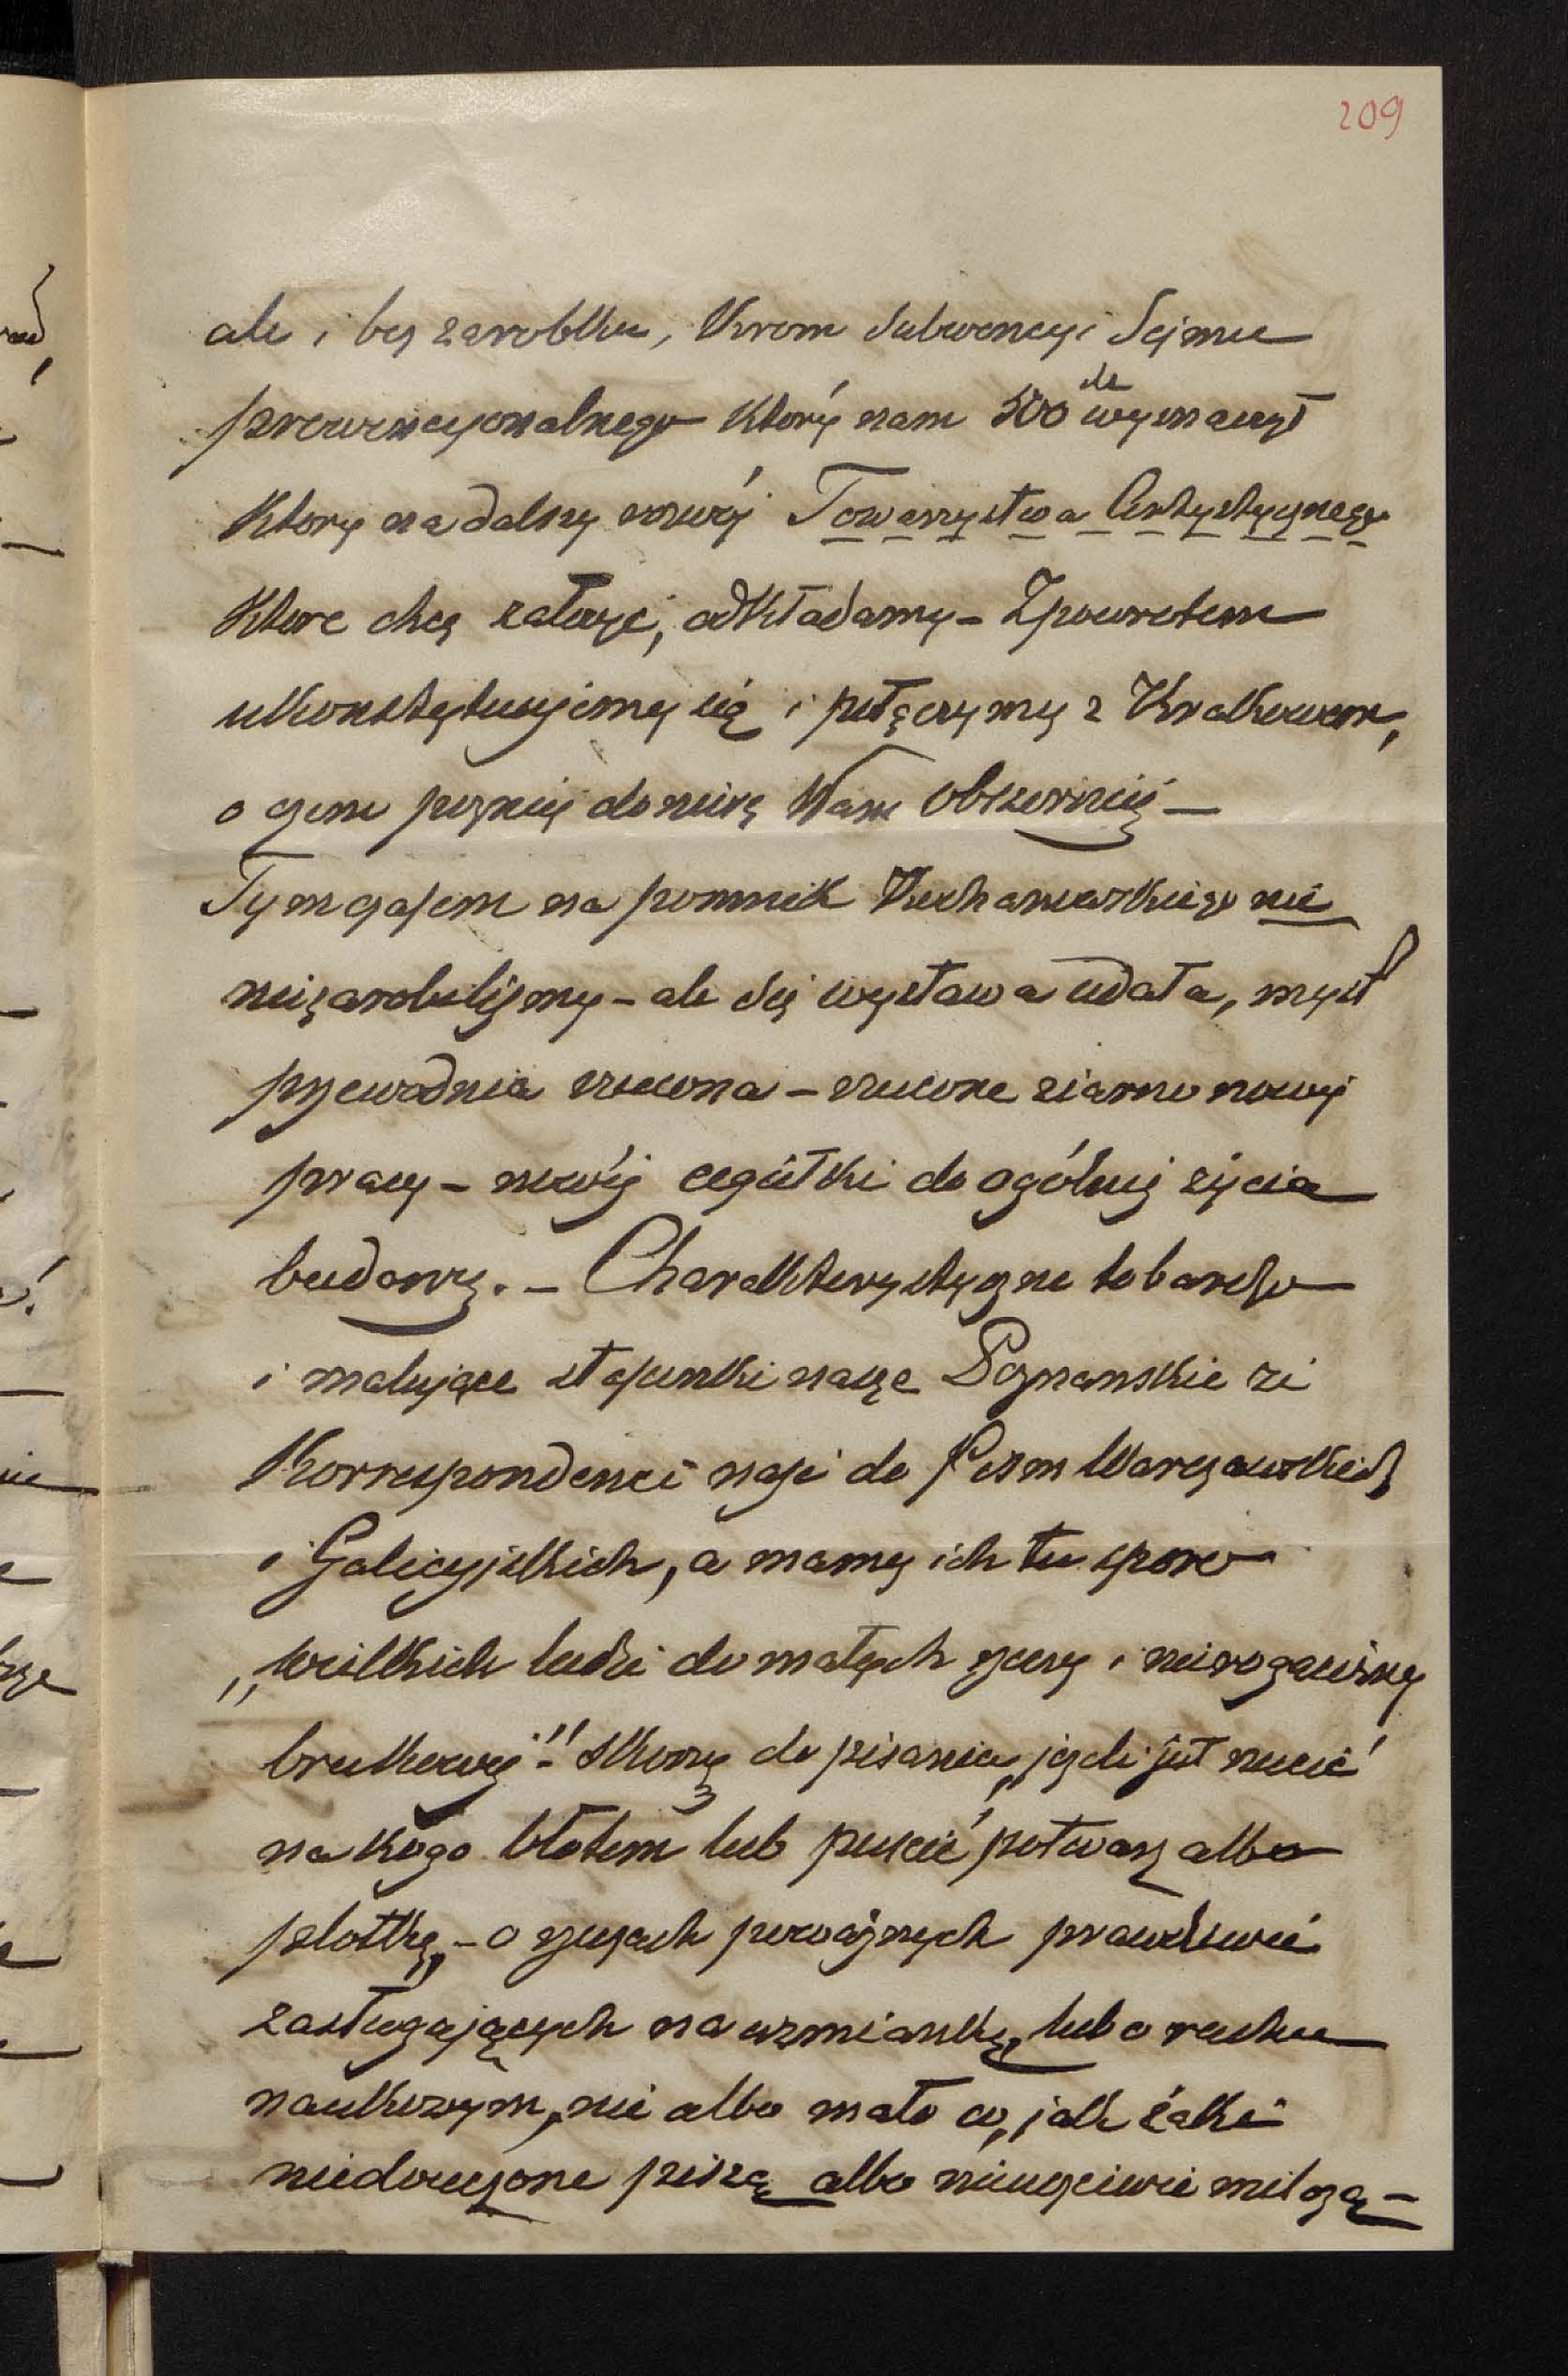 209
ale i bez zarobku, Krom Subwencyi Sejmu
prowincyonalnego Który nam 500 wyznaczył
Ktory na dalszy rozwój Towarzystwa Artystycznego
Ktore chcę założyć, odkładamy – Zpowrotem
ukonstytuujemy się i połączymy z Krakowem,
o czem poznij doniosę Wam obszerniej –
Tymczasem na pomnik Kochanowskiego nic
niezarobilismy – ale się wystawa udała, myśl
przewodnia rzucona – rzucone ziarno nowej
pracy – nowéj cegiełki do ogólnej życia
budowy. – Charakterystyczne to bardzo
i malujące stosunki nasze Poznanskie że
Korrespondenci nasi do pism Warszawskich
i Galicyjskich, a mamy ich tu sporo
„wielkich ludzi do małych rzeczy i nierogacizny
brukowej" – skorzy do pisania, jeżeli jest rzucić
na kogo błotem lub puścić potwarz albo
plotkę, – o rzeczach poważnych prawdziwie
zasługających na wzmiankę, lub o ruchu
naukowym, nic albo mało co, jak żaki
niedouczone piszą albo nieuczciwie milczą –